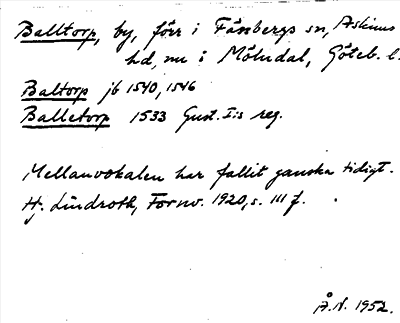 Balltorp, by, förr i Fässbergs sn, Askims
hd, nu i Mölndal, Göteb. l.
Baltorp jb 1540, 1546
Balletorp 1533 Gust. I:s reg.
Mellanvokalen har fallit ganska tidigt.
Hj. Lindroth, Fornv. 1920, s. 111 f.
Å.N. 1952.